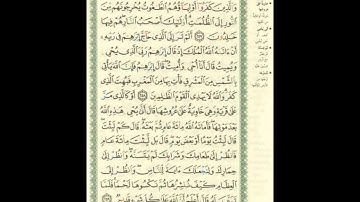 وَالَّذِينَ كَفَرُوٓا۟ أَوْلِيَآؤُهُمُ ٱلطَّـٰغُوتُ يُخْرِجُونَهُم مِّنَ
ٱلنُّورِ إِلَى ٱلظُّلُمَـٰتِ أُو۟لَـٰٓئِكَ أَصْحَـٰبُ ٱلنَّارِ هُمْ فِيهَا
خَـٰلِدُونَ ٢٥٧ أَلَمْ تَرَ إِلَى ٱلَّذِى حَآجَّ إِبْرَٰهِـۧمَ فِى رَبِّهِۦٓ
أَنْ ءَاتَىٰهُ ٱللَّهُ ٱلْمُلْكَ إِذْ قَالَ إِبْرَٰهِـۧمُ رَبِّىَ ٱلَّذِى يُحْىِۦ
وَيُمِيتُ قَالَ أَنَا۠ أُحْىِۦ وَأُمِيتُ قَالَ إِبْرَٰهِـۧمُ فَإِنَّ ٱللَّهَ يَأْتِى
بِٱلشَّمْسِ مِنَ ٱلْمَشْرِقِ فَأْتِ بِهَا مِنَ ٱلْمَغْرِبِ فَبُهِتَ ٱلَّذِى
كَفَرَ وَٱللَّهُ لَا يَهْدِى ٱلْقَوْمَ ٱلظَّـٰلِمِينَ ٢٥٨ أَوْ كَٱلَّذِى مَرَّ
عَلَىٰ قَرْيَةٍ وَهِىَ خَاوِيَةٌ عَلَىٰ عُرُوشِهَا قَالَ أَنَّىٰ يُحْىِۦ هَـٰذِهِ ٱللَّهُ
بَعْدَ مَوْتِهَا فَأَمَاتَهُ ٱللَّهُ مِا۟ئَةَ عَامٍ ثُمَّ بَعَثَهُۥ قَالَ كَمْ لَبِثْتَ
قَالَ لَبِثْتُ يَوْمًا أَوْ بَعْضَ يَوْمٍ قَالَ بَل لَّبِثْتَ مِا۟ئَةَ عَامٍ
فَٱنظُرْ إِلَىٰ طَعَامِكَ وَشَرَابِكَ لَمْ يَتَسَنَّهْ وَٱنظُرْ إِلَىٰ
حِمَارِكَ وَلِنَجْعَلَكَ ءَايَةً لِّلنَّاسِ وَٱنظُرْ إِلَى
ٱلْعِظَامِ كَيْفَ نُنشِزُهَا ثُمَّ نَكْسُوهَا لَحْمًا فَلَمَّا
تَبَيَّنَ لَهُۥ قَالَ أَعْلَمُ أَنَّ ٱللَّهَ عَلَىٰ كُلِّ شَىْءٍ قَدِيرٌ ٢٥٩